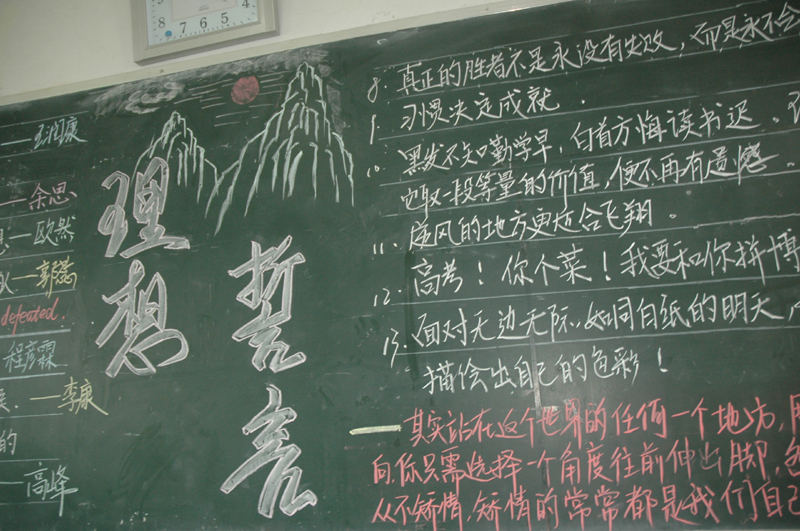 8 7 6 5 4
理想
哲言
——王润康
——余思
——欧然
——郭蕊
defeated.
程彦霖
——李康
的
——高峰
8. 真正的胜者不是永没有失败，而是永不会
9. 习惯决定成就.
10. 黑发不知勤学早，白首方悔读书迟。
取一段等量的价值，便不再有遗憾。
11. 逆风的地方更适合飞翔。
12. 高考！你个菜！我要和你拼博
13. 面对无边无际、如同白纸的明天，
描绘出自己的色彩！
——其实站在这个世界的任何一个地方,
向,你只需选择一个角度往前伸出脚,
从不矫情,矫情的常常都是我们自己